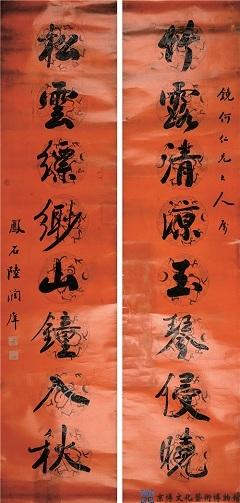 鏡何仁兄大人屬
竹露清涼玉琴侵曉
松雲縹緲山鐘入秋
鳳石陸潤庠
京博文化藝術博物館